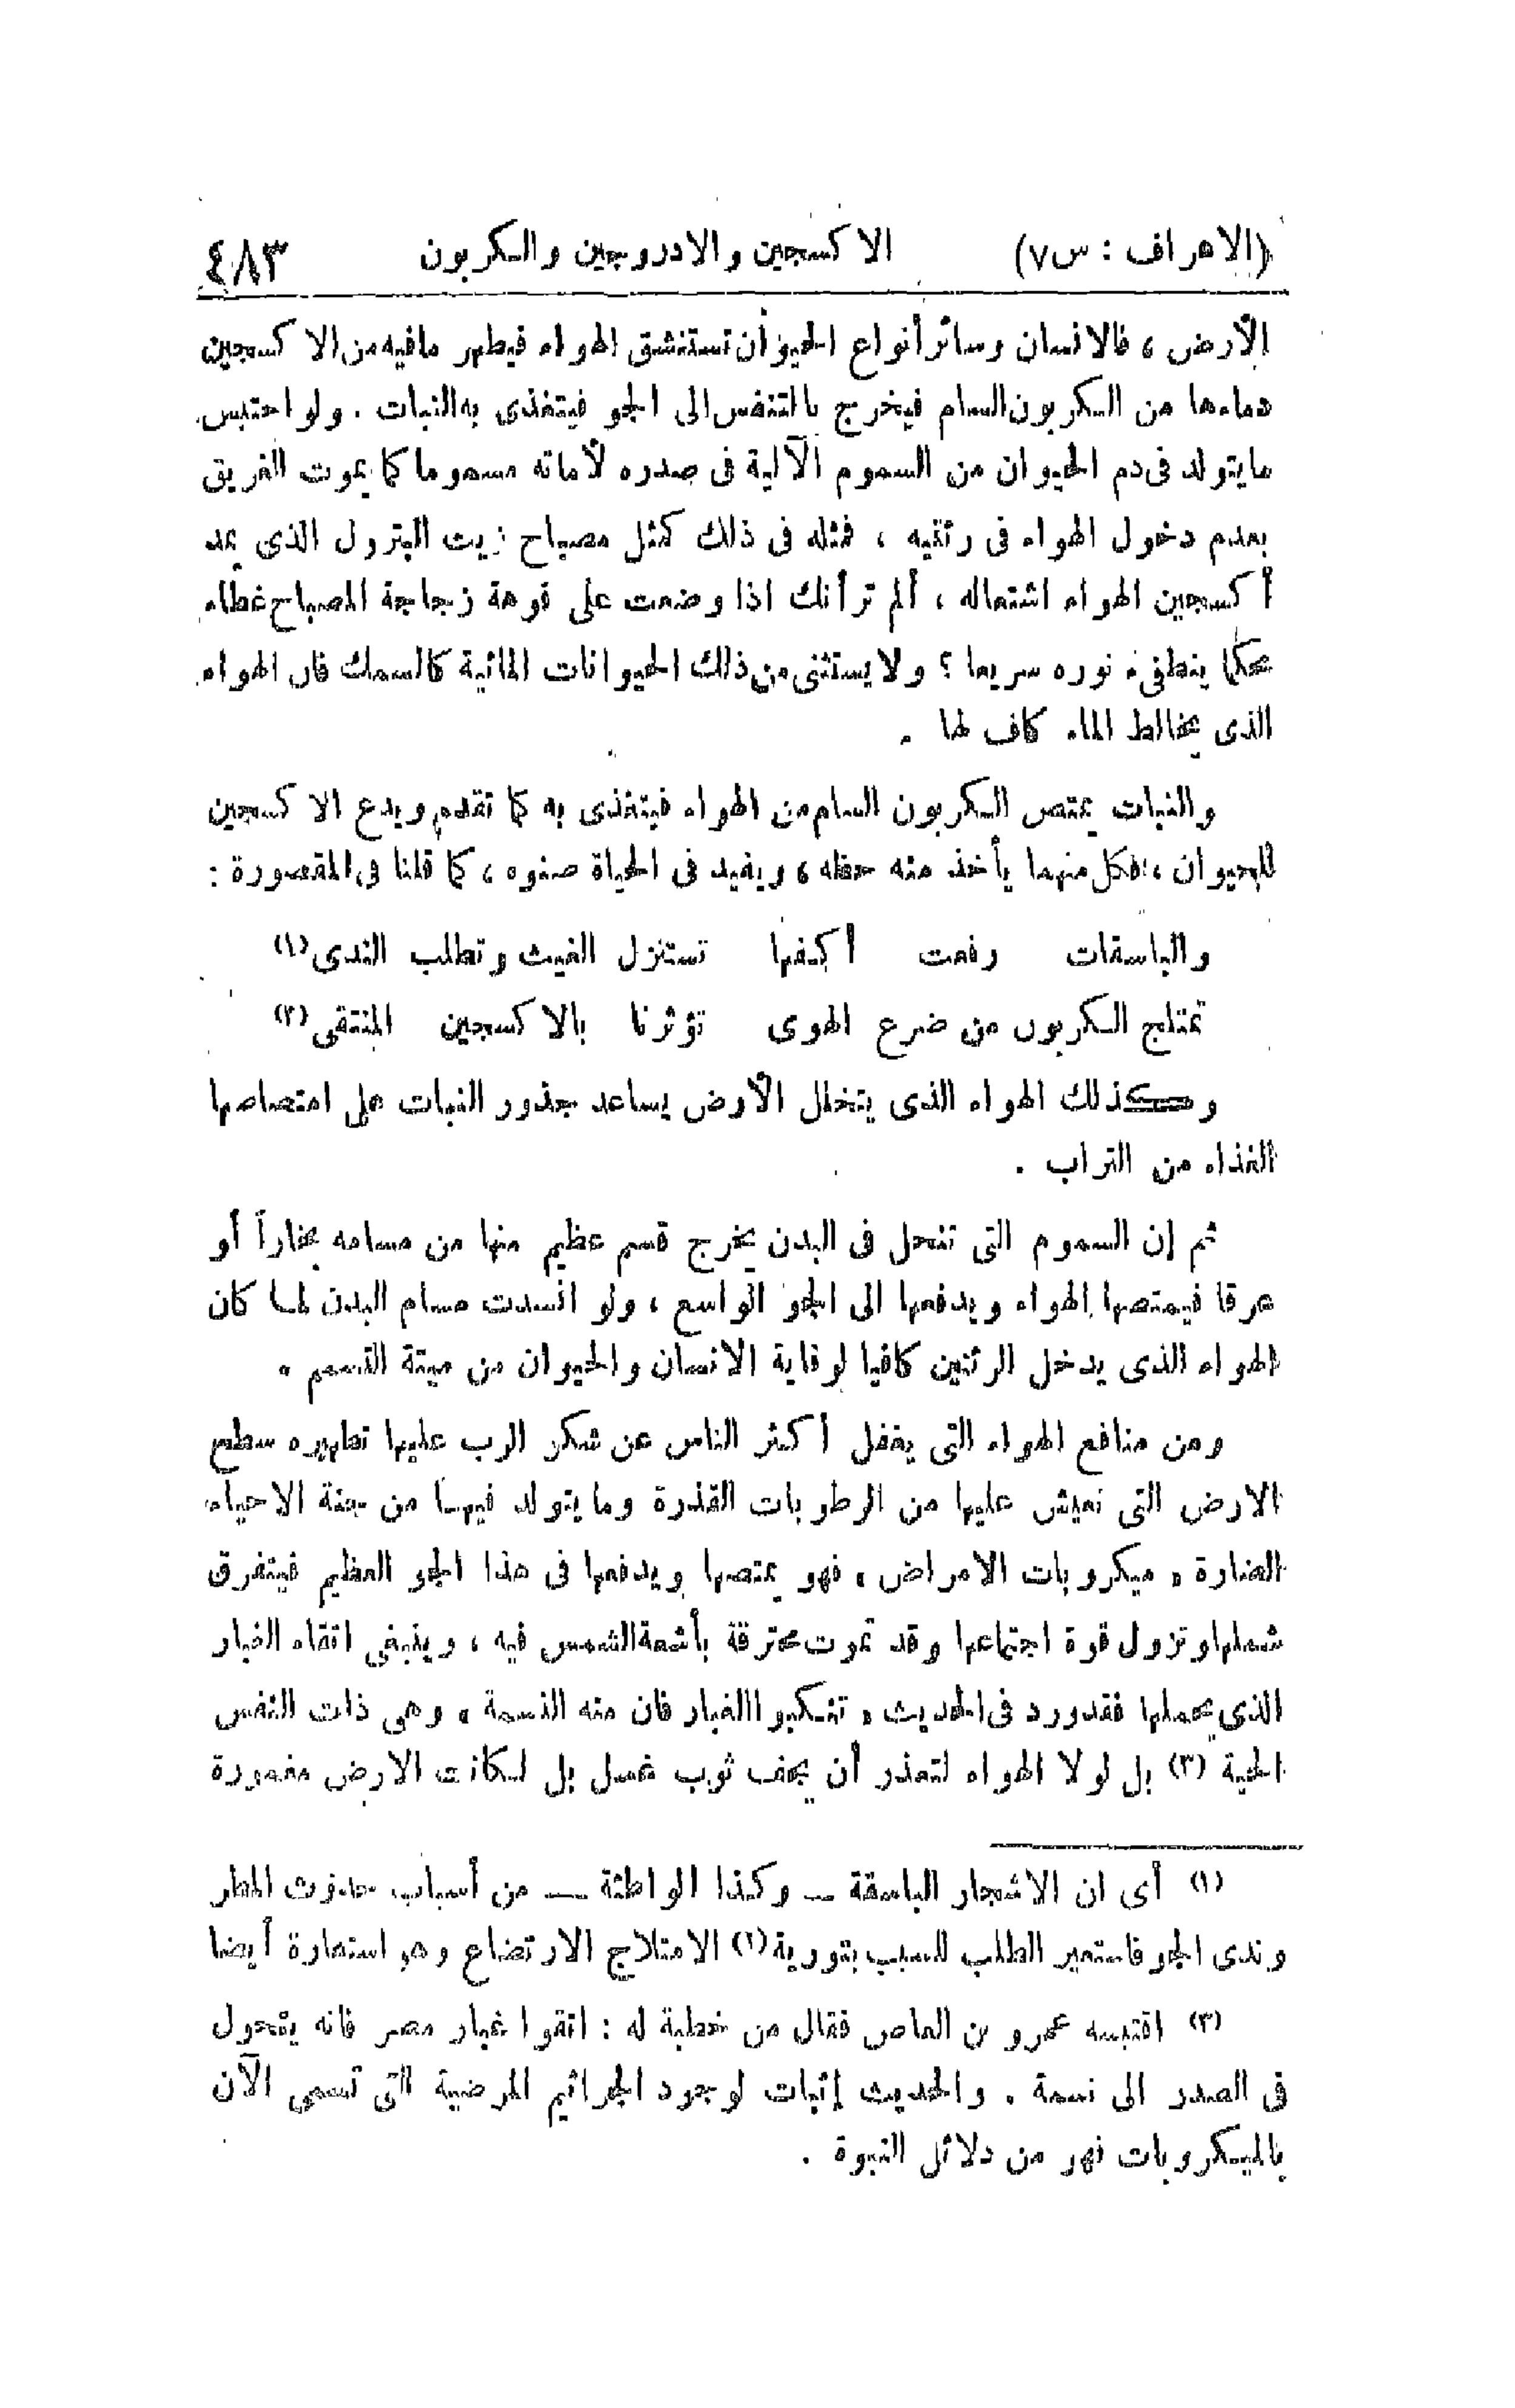 (الاعراف : س٧) الاكسجين والادروجين والكربون ٤٨٣
الأرض ، فالانسان وسائر أنواع الحيوان تستنشق الهواء فيطهر ما فيه من الاكسجين
دماءها من الكربون السام فيخرج بالتنفس الى الجو فيتغذى به النبات . ولو احتبس
ما يتولد فى دم الحيوان من السموم الآلية فى صدره لأماته مسموما كما يموت الغريق
بعدم دخول الهواء فى رئتيه ، فمثله فى ذلك كمثل مصباح زيت البترول الذى يمد
أكسجين الهواء اشتعاله ، ألم تر أنك اذا وضعت على فوهة زجاجة المصباح غطاء
محكما ينطفىء نوره سريعا ؟ ولا يستثنى من ذلك الحيوانات المائية كالسمك فان الهواء
الذى يخالط الماء كاف لها .
والنبات يمتص الكربون السام من الهواء فيتغذى به كما تقدم ويدع الاكسجين
للحيوان ، فكل منهما يأخذ منه حظه ، ويفيد فى الحياة صنوه ، كما قلنا فى المقصورة :
والباسقات رفعت أكفها تستنزل الغيث وتطلب الندى (١)
تمتلج الكربون من ضرع الهوى تؤثرنا بالاكسجين المنتقى (٢)
وكذلك الهواء الذى يتخلل الأرض يساعد جذور النبات على امتصاصها
الغذاء من التراب .
ثم إن السموم التى تنحل فى البدن يخرج قسم عظيم منها من مسامه بخاراً أو
عرقا فيمتصها الهواء ويدفعها الى الجو الواسع ، ولو انسدت مسام البدن لما كان
الهواء الذى يدخل الرئتين كافيا لوقاية الانسان والحيوان من ميتة التسمم .
ومن منافع الهواء التى يغفل أكثر الناس عن شكر الرب عليها تطهيره سطح
الارض التى نعيش عليها من الرطوبات القذرة وما يتولد فيها من جنة الاحياء
الضارة « ميكروبات الامراض » فهو يمتصها ويدفعها فى هذا الجو العظيم فيتفرق
شملها وتزول قوة اجتماعها وقد تموت محترقة بأشعة الشمس فيه ، وينبغى اتقاء الغبار
الذى يحملها فقد ورد فى الحديث « تنكبوا الغبار فان منه النسمة » وهى ذات النفس
الحية (٣) بل لولا الهواء لتعذر أن يجف ثوب غسل بل لكانت الارض مغمورة
(١) أى ان الاشجار الباسقة — وكذا الواطئة — من أسباب حدوث المطر
وندى الجو فاستعير الطلب للسبب بتورية (٢) الامتلاج الارتضاع وهو استعارة أيضا
(٣) اقتبسه عمرو بن العاص فقال من خطبة له : اتقوا غبار مصر فانه يتحول
فى الصدر الى نسمة . والحديث إثبات لوجود الجراثيم المرضية التى تسمى الآن
بالميكروبات فهو من دلائل النبوة .